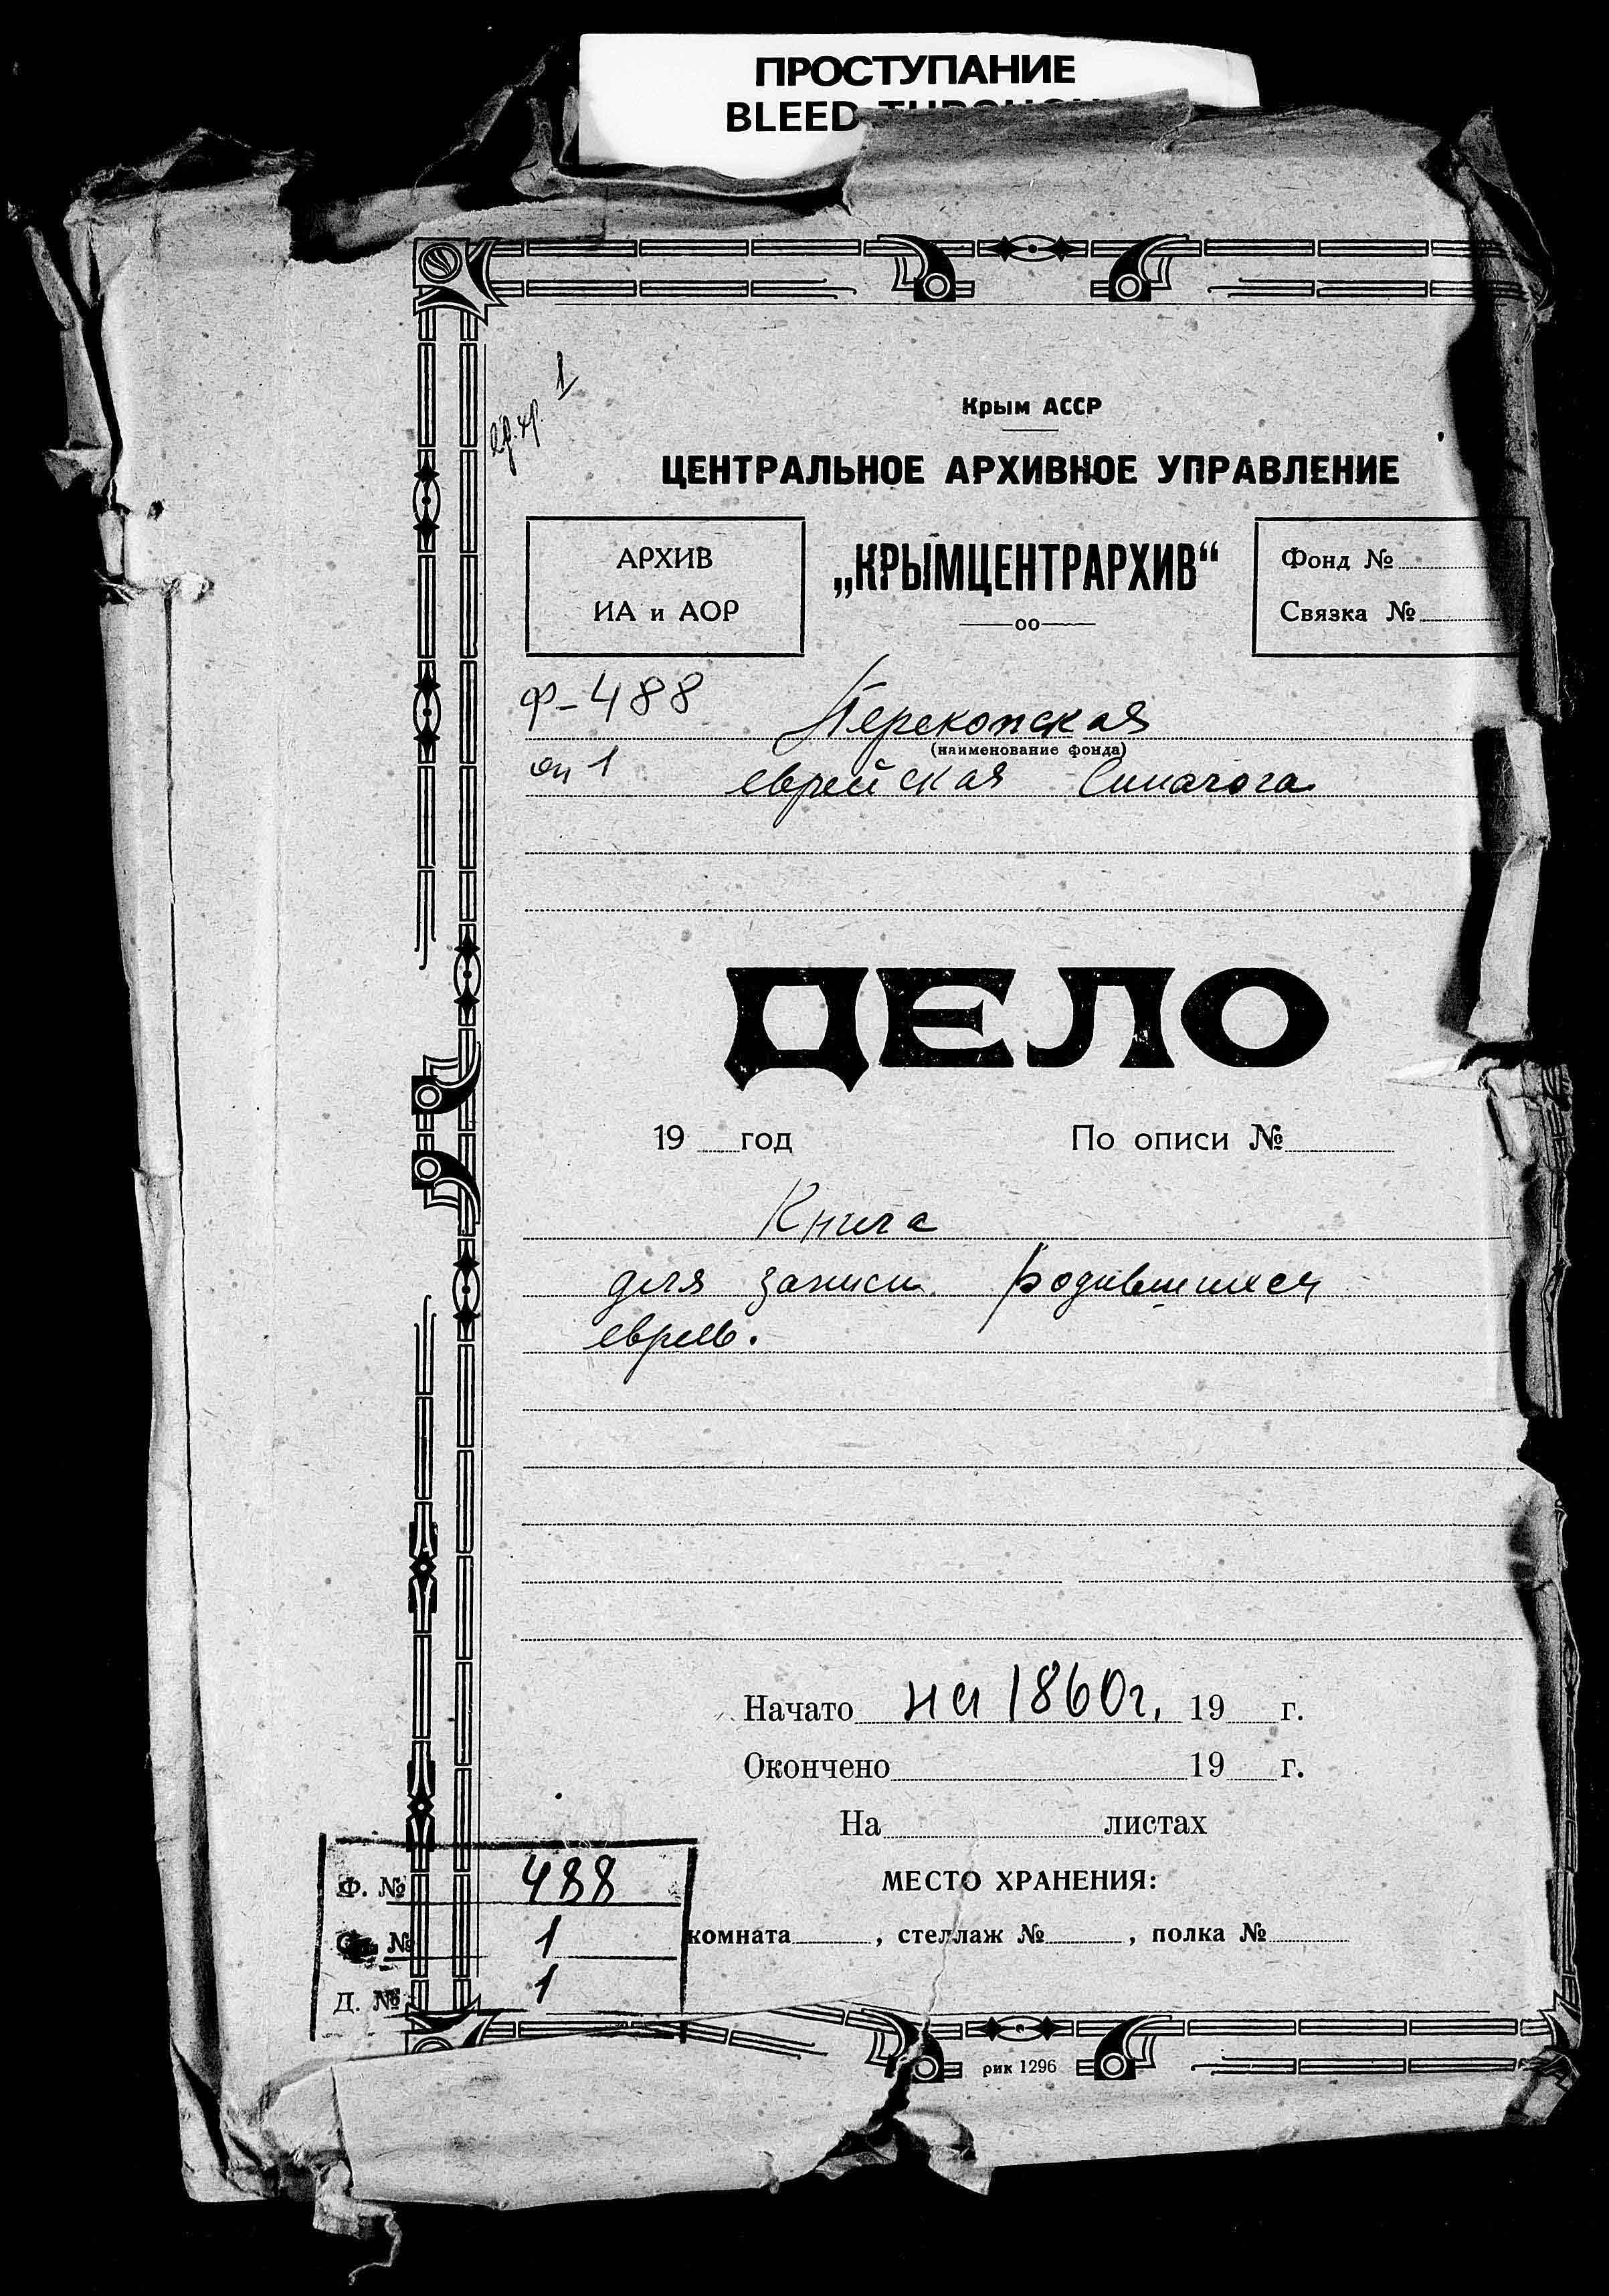 ПРОСТУПАНИЕ
BLEED
ед. хр. 1
Крым АССР
ЦЕНТРАЛЬНОЕ АРХИВНОЕ УПРАВЛЕНИЕ
АРХИВ
ИА и АОР
„КРЫМЦЕНТРАРХИВ“
Фонд №
Связка №
Ф-488
Перекопская
(наименование фонда)
оп 1
еврейская Синагога
ДЕЛО
19 год
По описи №
Книга
для записи родившихся
евреев.
Начато на 1860г. 19 г.
Окончено 19 г.
На листах
МЕСТО ХРАНЕНИЯ:
комната , стеллаж № , полка №
Ф. № 488
№ 1
Д. № 1
рик 1296